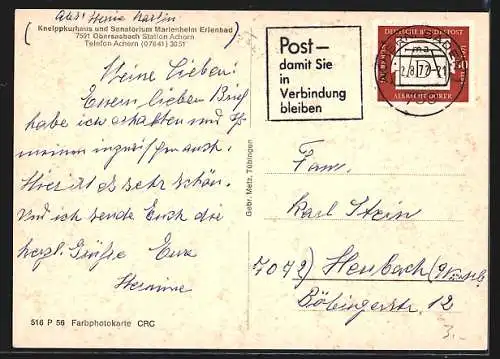 Abs: Herne Karlin
Kneippkurhaus und Sanatorium Marienheim Erlenbad
7591 Obersasbach Station Achern
Telefon Achern (07841) 3051
Meine Lieben!
Euern lieben Brief
habe ich erhalten und
meinen inzwischen auch.
Hier ist es sehr schön.
Und ich sende Euch die
herzl. Grüße Eure
Hermine
516 P 56 Farbphotokarte CRC
Gebr. Metz, Tübingen
Post—
damit Sie
in
Verbindung
bleiben
DEUTSCHE BUNDESPOST
30
ALBRECHT DÜRER
ma
-2.8.71-21
Fam.
Karl Stein
7072) Heubach (Württ.
Böbingerstr. 12
3.-